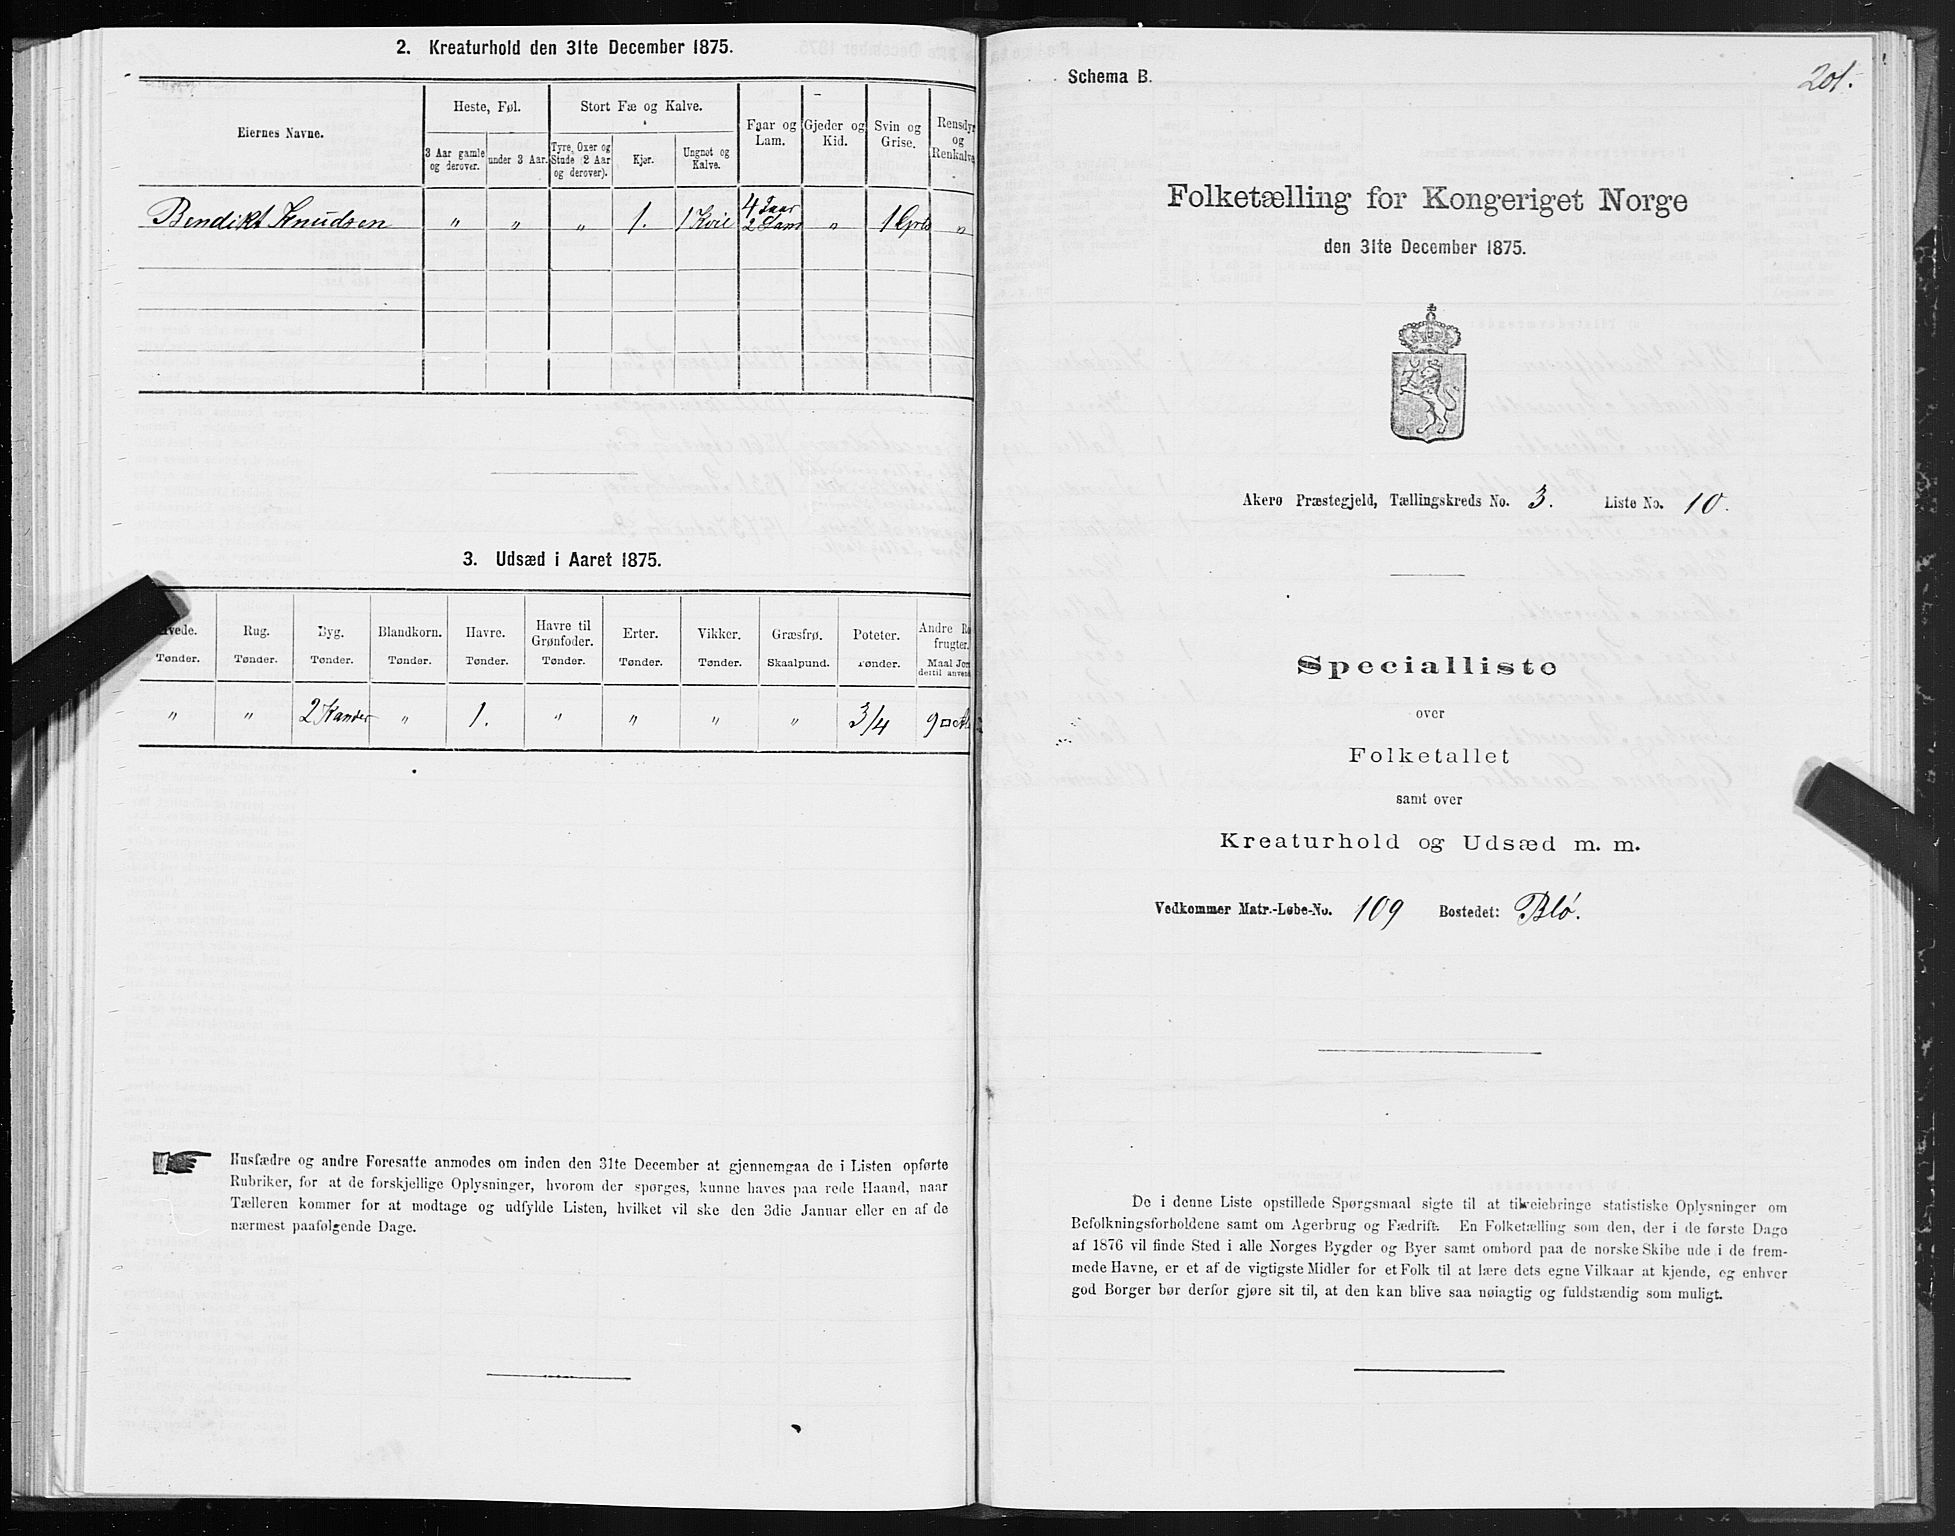 2. Kreaturhold den 31te December 1875.
Eiernes Navne.
Heste, Føl.
Stort Fæ og Kalve.
Faar og Lam.
Gjeder og Kid.
Svin og Grise.
Rensdyr og Renkalve
3 Aar gamle og derover.
under 3 Aar.
Tyre, Oxer og Stude (2 Aar og derover).
Kjør.
Ungnøt og Kalve.
Bendikt Knudsen " " " 1. 4 Faar 2 Lam " 1 "
3. Udsæd i Aaret 1875.
Hvede. Rug. Byg. Blandkorn. Havre. Havre til Grønfoder. Erter. Vikker. Græsfrø. Poteter. Andre Ro frugter.
Tønder. Tønder. Tønder. Tønder. Tønder. Tønder. Tønder. Tønder. Skaalpund. Tønder. Maal Jor dertil anvend
" " 2 Kander " 1. " " " " 3/4 9
Husfædre og andre Foresatte anmodes om inden den 31te December at gjennemgaa de i Listen opførte
Rubriker, for at de forskjellige Oplysninger, hvorom der spørges, kunne haves paa rede Haand, naar
Tælleren kommer for at modtage og udfylde Listen, hvilket vil ske den 3die Januar eller en af de
nærmest paafølgende Dage.
Schema B.
201.
Folketælling for Kongeriget Norge
den 31te December 1875.
Akerø Præstegjeld, Tællingskreds No. 3. Liste No. 10.
Specialliste
over
Folketallet
samt over
Kreaturhold og Udsæd m. m.
Vedkommer Matr.-Løbe-No. 109 Bostedet: Blø.
De i denne Liste opstillede Spørgsmaal sigte til at tilveiebringe statistiske Oplysninger om
Befolkningsforholdene samt om Agerbrug og Fædrift. En Folketælling som den, der i de første Dage
af 1876 vil finde Sted i alle Norges Bygder og Byer samt ombord paa de norske Skibe ude i de frem-
mede Havne, er et af de vigtigste Midler for et Folk til at lære dets egne Vilkaar at kjende, og enhver
god Borger bør derfor gjøre sit til, at den kan blive saa nøiagtig og fuldstændig som muligt.